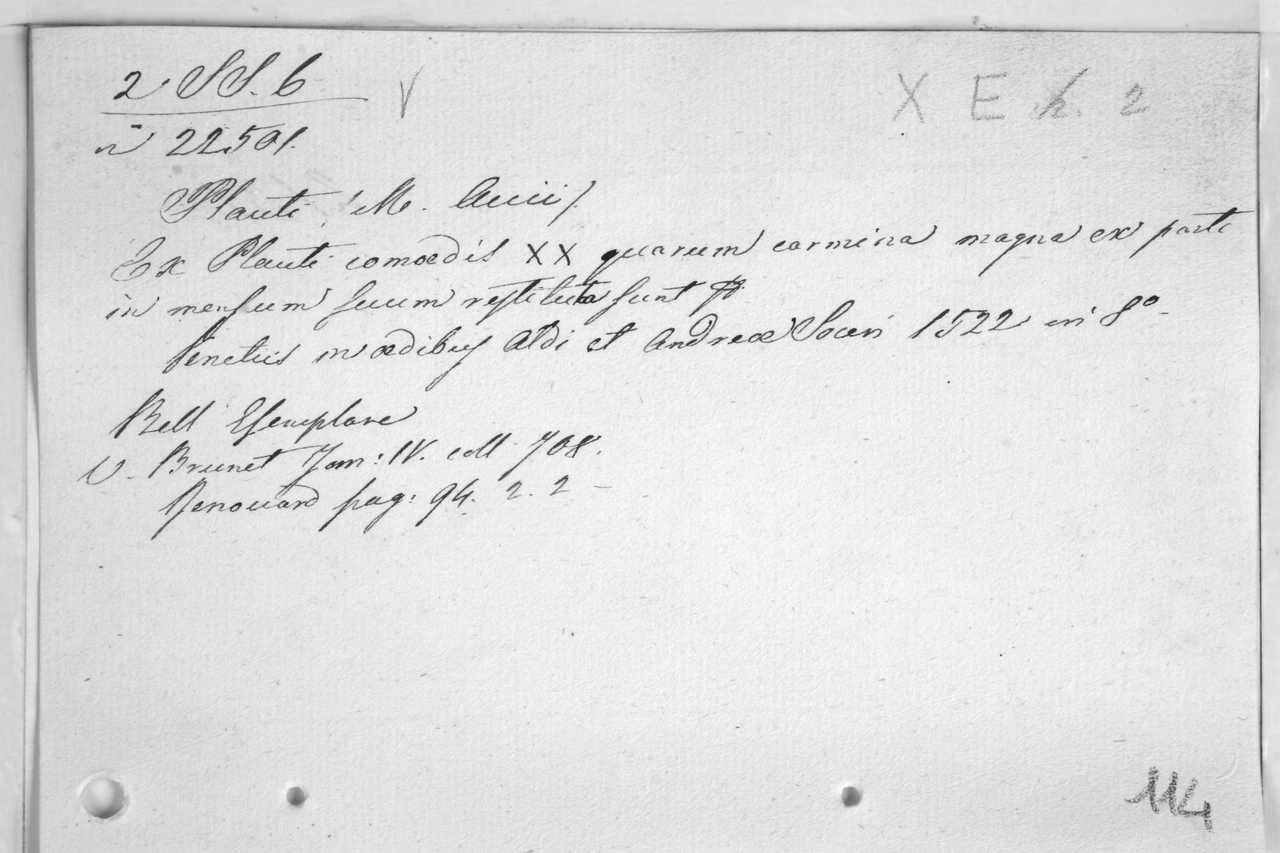 2. SS. 6 V X E h. 2
n 22501.
Plauti M. Accii /
Ex Plauti comoedis XX quarum carmina magna ex parte
in mensum suum restituta sunt
Venetiis in ædibus Aldi et Andreæ Soceri 1522 in 8º
Bell Esemplare
V. Brunet Tom: IV. coll 708.
Renouard pag: 94. 2. 2 -
114